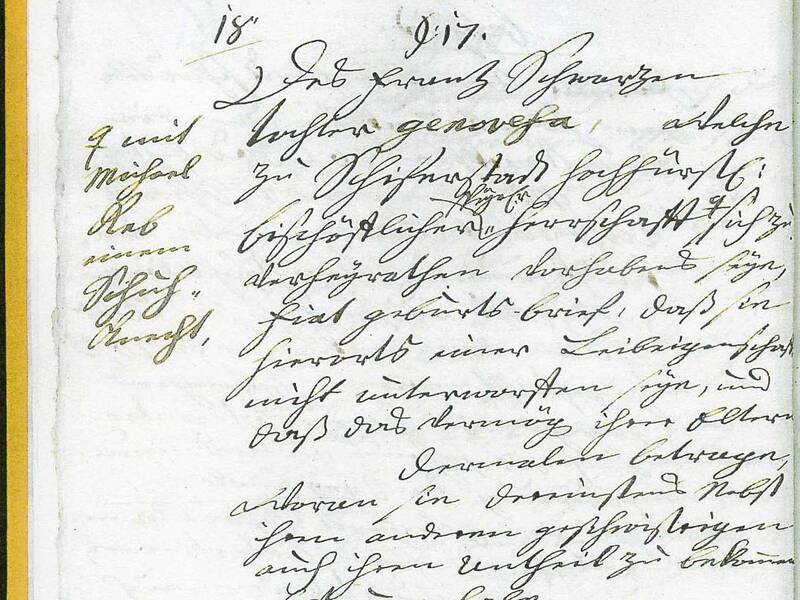 18
d. 17.
Des Frantz Schwarzen
tochter genovefa, welche
zu Schiferstadt hochfürstl:
bischöflicher Speyer: Herrschafft sich zu
verheyrathen vorhabens seye,
fiat geburts-brief, daß sie
hierorts einer Leibeigenschaft
nicht unterworffen seye, und
daß das Vermög ihrer Eltern
dermalen betrage,
Woran sie dereinstens Nebst
ihren anderen geschwistrigen
auch ihren Antheil zu bekommen
mit
Michael
Reb
einem
Schuh-
Knecht,